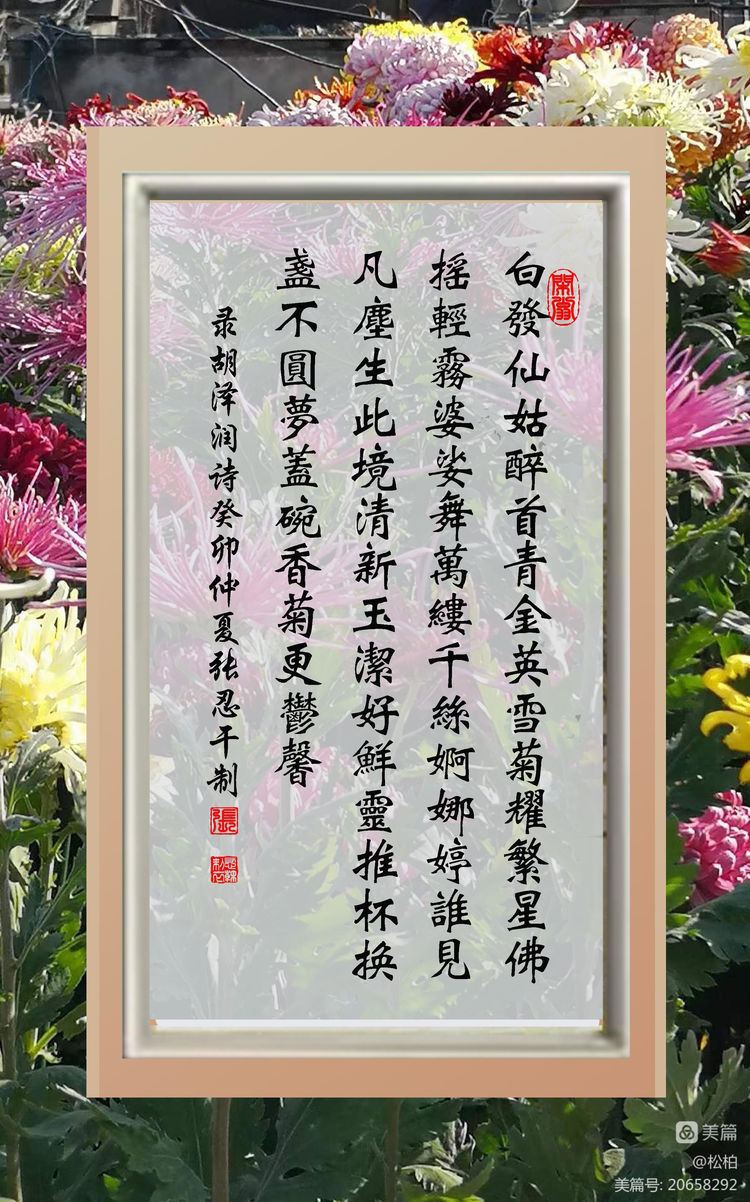 白發仙姑醉首青金英雪菊耀繁星佛
搖輕霧婆娑舞萬縷千絲婀娜婷誰見
凡塵生此境清新玉潔好鮮靈推杯换
盞不圓夢蓋碗香菊更鬱馨
录胡泽润诗癸卯仲夏张忍干制
張
美篇
@松柏
美篇号: 20658292